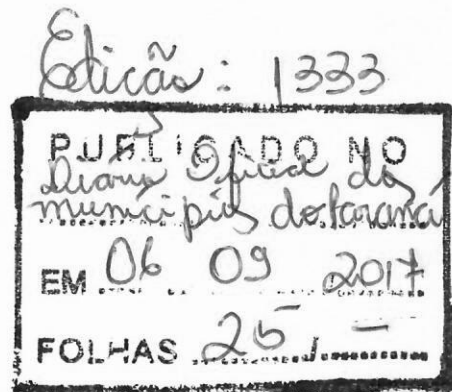 Edicão: 1333
PUBLICADO NO
Diário Oficial dos
municípios do Paraná
EM 06 09 2017
FOLHAS 25 / -